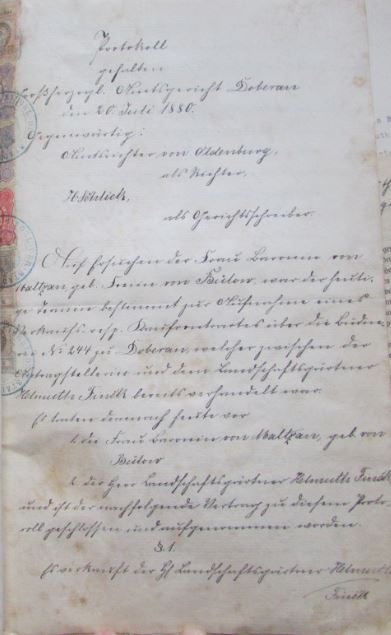 Protokoll
gehalten
Großherzogl. Amtsgericht Doberan
den 20. Juli 1880.
Gegenwärtig:
Amtsrichter von Oldenburg,
als Richter,
als Gerichtsschreiber.
Auf Ersuchen der Frau Baronin von
Maltzan, geb. von Bülow, war der heuti-
ge Termin bestimmt zur Aufnahme eines
Verkaufs- resp. Kaufcontractes über die Büdne-
rei No 244 zu Doberan, welcher zwischen der
Antragstellerin und dem Landschaftsgärtner
bereits verhandelt war.
Es traten demnach heute vor
1. die Frau Baronin von Maltzan, geb. von
Bülow
2. der Herr Landschaftsgärtner
und ist der nachfolgende Vertrag zu diesem Proto-
coll geschlossen und aufgenommen worden.
§. 1.
Es verkauft der Landschaftsgärtner